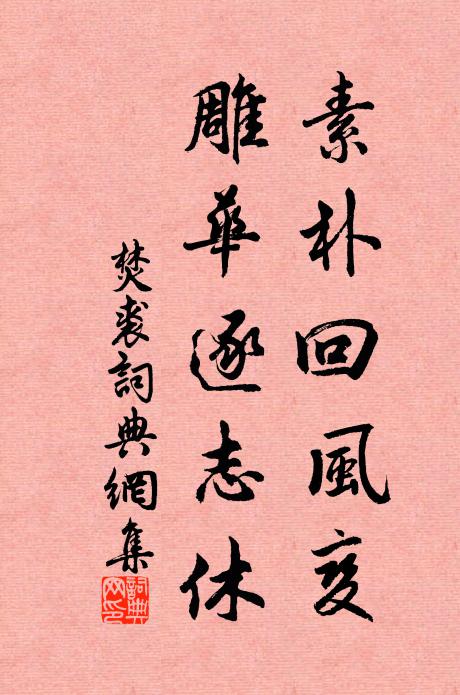 素朴回風変
雕華逐志休
焚裘詞典網集
詞典
网印